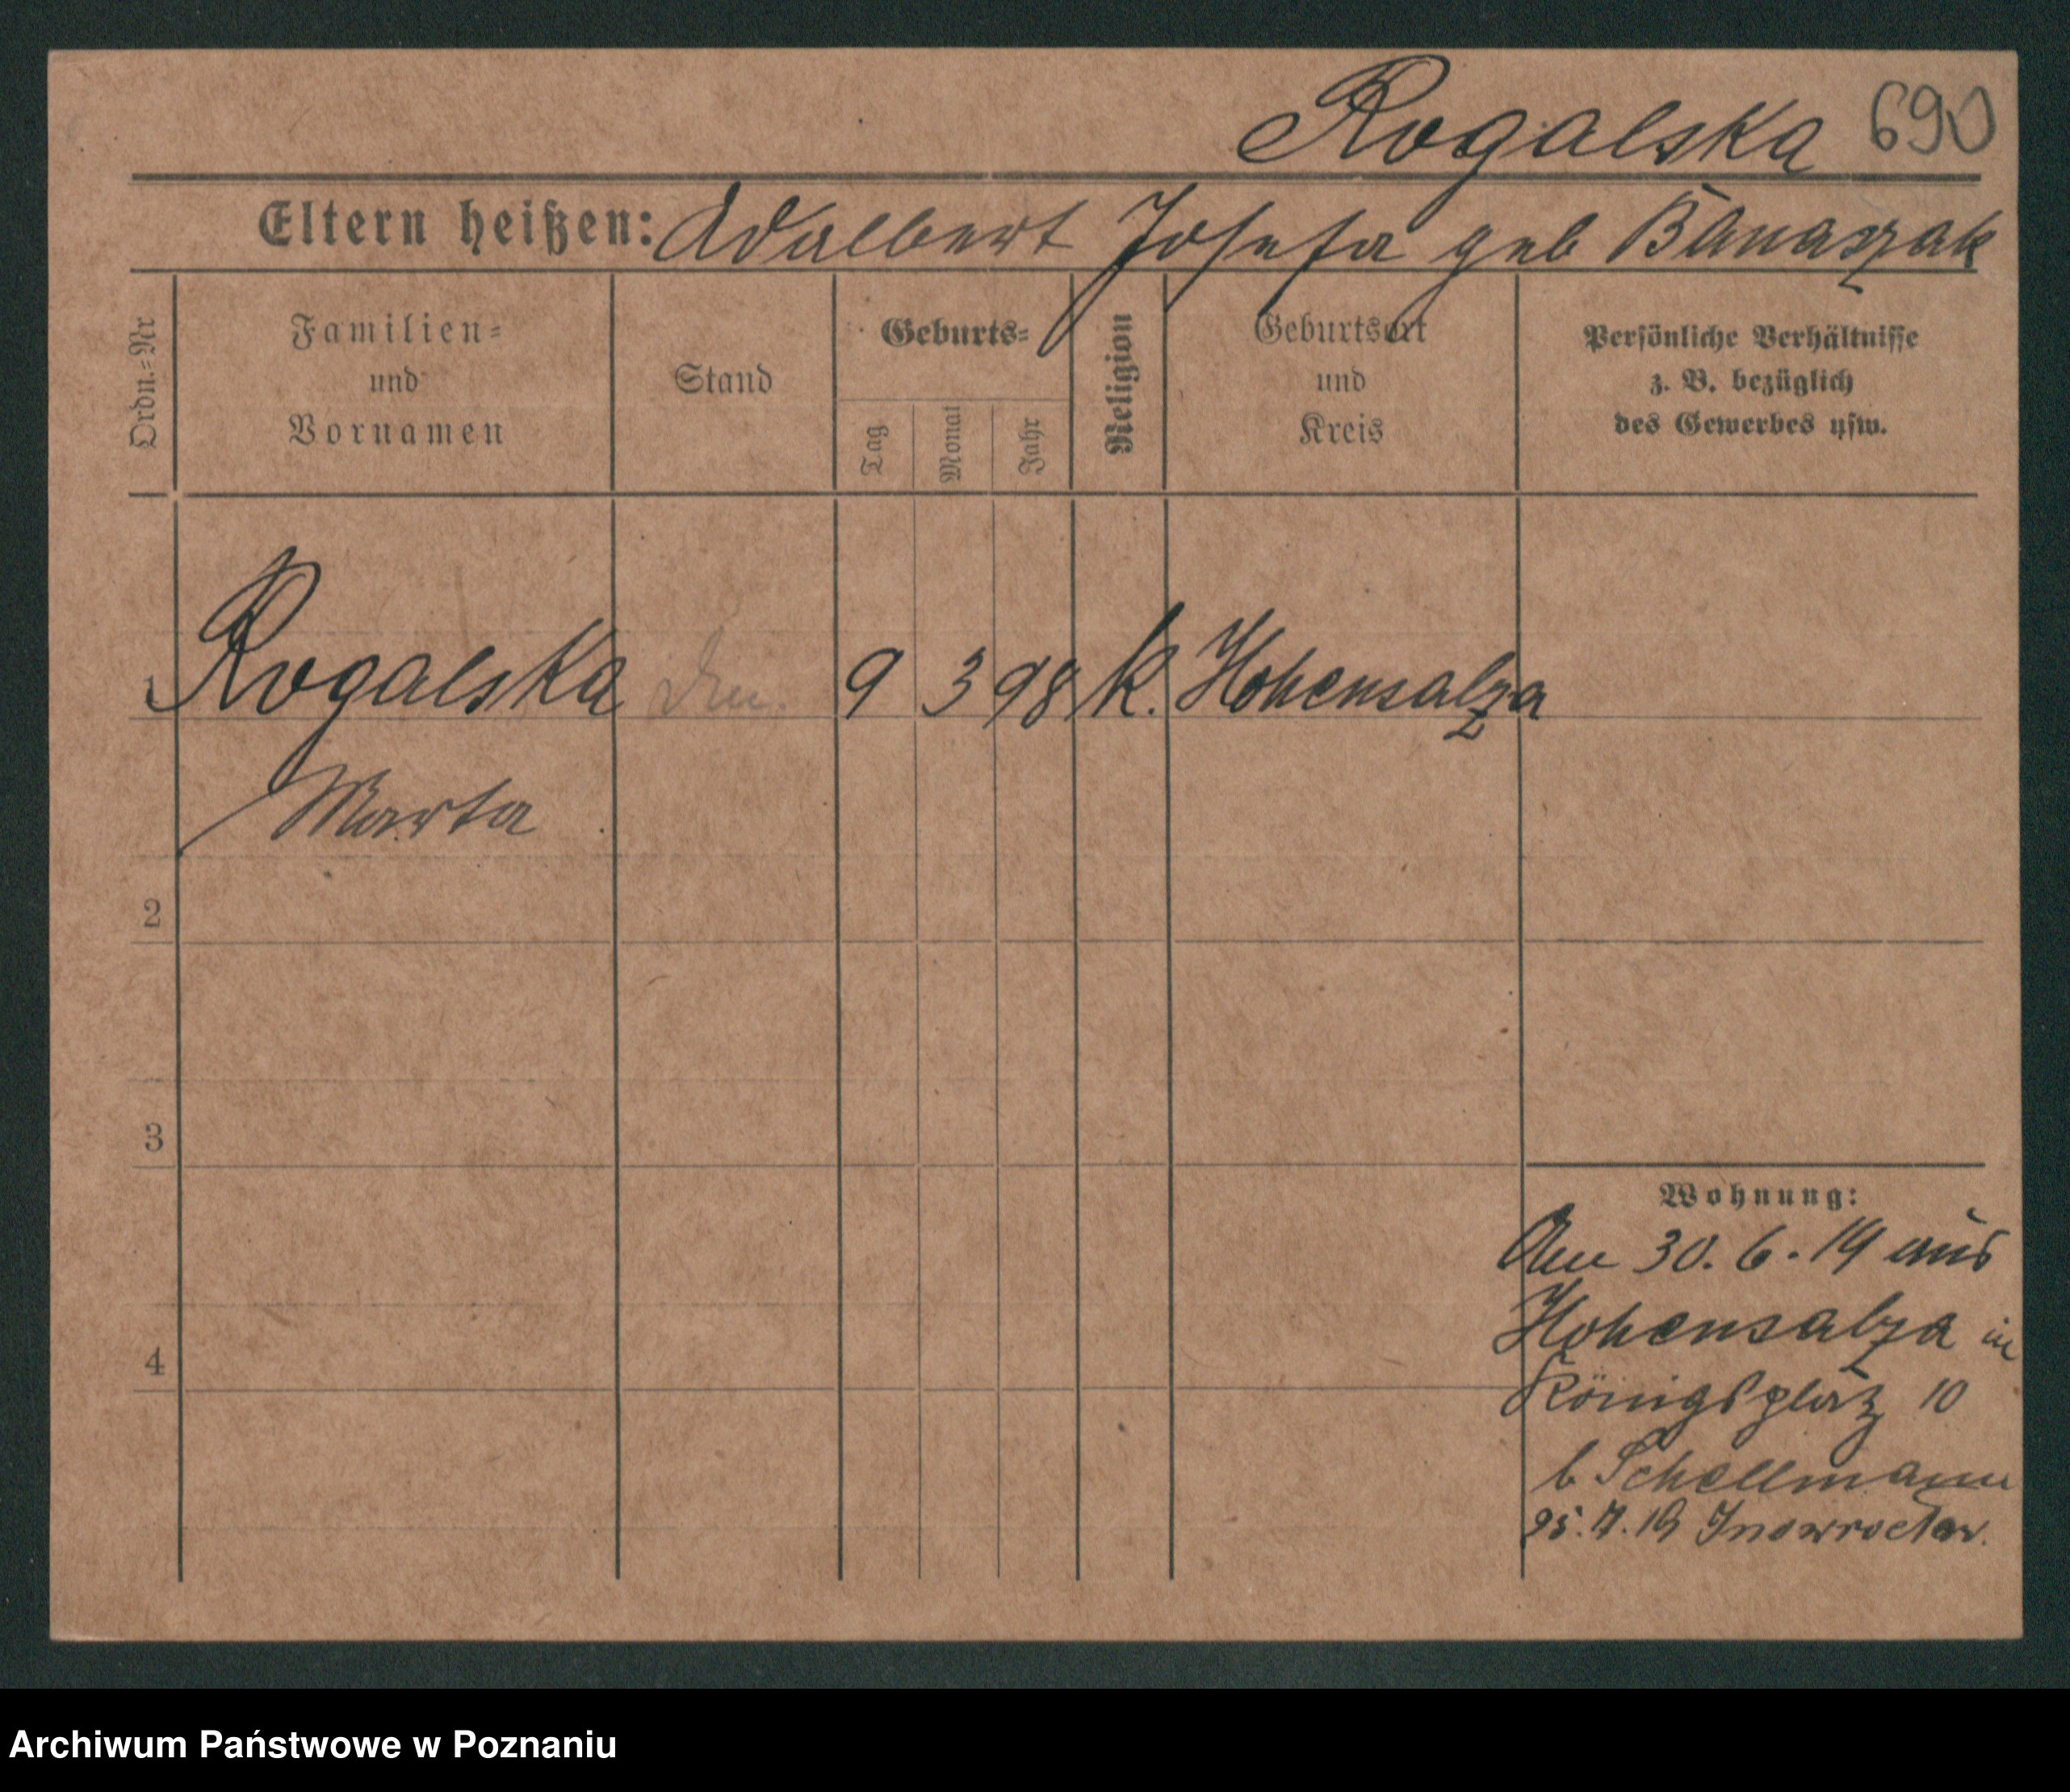 Rogalska 690
Eltern heißen: Adalbert Josefa geb Banaszak
Ordn.=Nr
Familien=
und
Vornamen
Stand
Geburts=
Tag
Monat
Jahr
Religion
Geburtsort
und
Kreis
Persönliche Verhältnisse
z. B. bezüglich
des Gewerbes usw.
1 Rogalska 9 3 98 K. Hohensalza
Marta
2
3
4
Wohnung:
Am 30. 6. 19 aus
Hohensalza in
Königsplatz 10
b Schellmann
25. 7. 19 Inowroclaw.
Archiwum Państwowe w Poznaniu